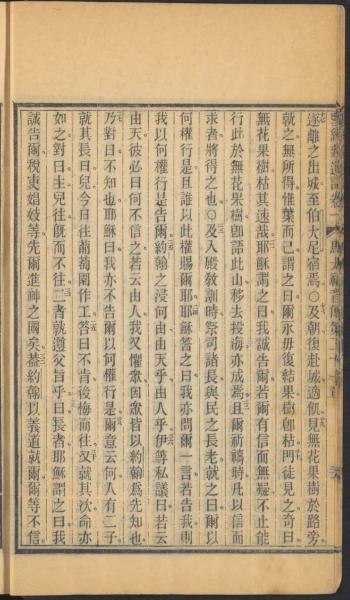 遂離之出城至伯大尼宿焉○及朝復赴城適飢見無花果樹於路旁
就之無所得惟葉而已謂之曰爾永毋復結果樹卽枯門徒見之奇曰
無花果樹枯其速哉耶穌謂之曰我誠告爾若爾有信而無疑不止能
行此於無花果樹卽語此山移去投海亦成焉且爾祈禱時凡以信而
求者將得之也○及入殿敎訓時祭司諸長與民之長老就之曰爾以
何權行是且誰以此權賜爾耶耶穌答之曰我亦問爾一言若告我則
我以何權行是告爾約翰之浸何由由天乎由人乎伊等私議曰若云
由天彼必曰何不信之若云由人我又懼衆因衆皆以約翰爲先知也
乃對曰不知也耶穌曰我亦不告爾以何權行是爾意云何人有二子
就其長曰兒今日往葡萄園作工答曰不肯後悔而往又就其次命亦
如之對曰主兒往旣而不往二者孰遵父旨乎曰長者耶穌謂之曰我
誠告爾稅吏娼妓等先爾進神之國矣蓋約翰以義道就爾爾等不信